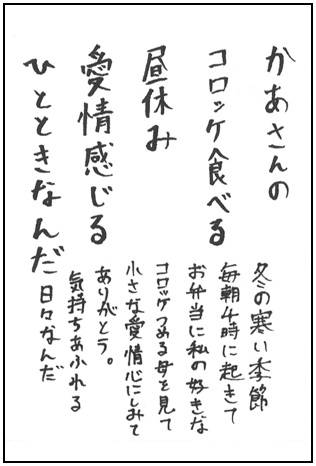 かあさんの
コロッケ食べる
昼休み
愛情感じる
ひとときなんだ
冬の寒い季節
毎朝4時に起きて
お弁当に私の好きな
コロッケつめる母を見て
小さな愛情心にしみて
ありがとう。
気持ちあふれる
日々なんだ